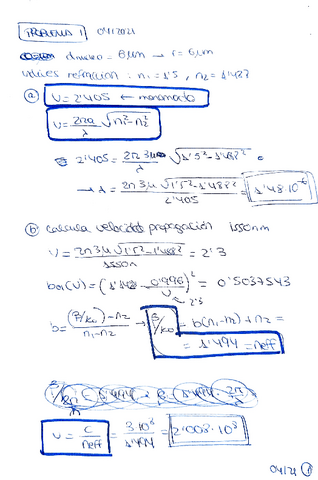 PROBLEMA 1 04/2021
dnucleo = 6μm → r = 6μm
indices refracción: n1 = 1'5, n2 = 1'487
a) V = 2'405 ← monomodo
V = 2πa/λ √n1²-n2²
2'405 = 2π3μ/λ √1'5²-1'487²
→ λ = 2π3μ√1'5²-1'487²/2'405 = 1'48·10^-6
b) calcula velocidad propagación 1550nm
V = 2π3μ√1'5²-1'487²/1550n = 2'3
b(V) = (1'142 - 0'996/V)² = 0'5037543
2'3
b = (β/k0)-n2/n1-n2 → β/k0 = b(n1-n2) + n2 =
= 1'494 = neff
v = c/neff = 3·10^8/1'494 = 2'008·10^8
04/21 1